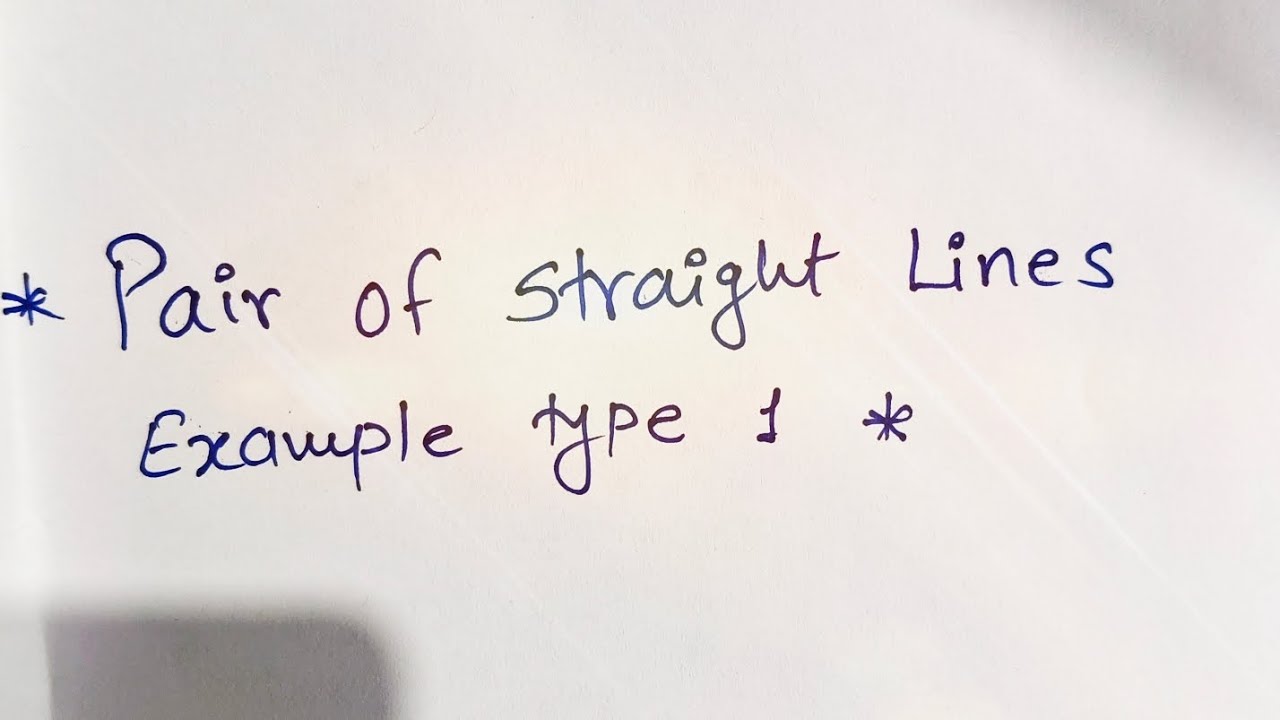 * Pair of Straight Lines
Example type 1 *